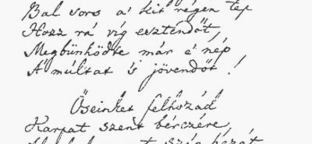 Bal sors a' kit régen tép
Hozz rá víg esztendőt,
Megbünhödte már e' nép
A' múltat 's jövendőt!
Őseinket felhozád
Kárpát szent bérczére,